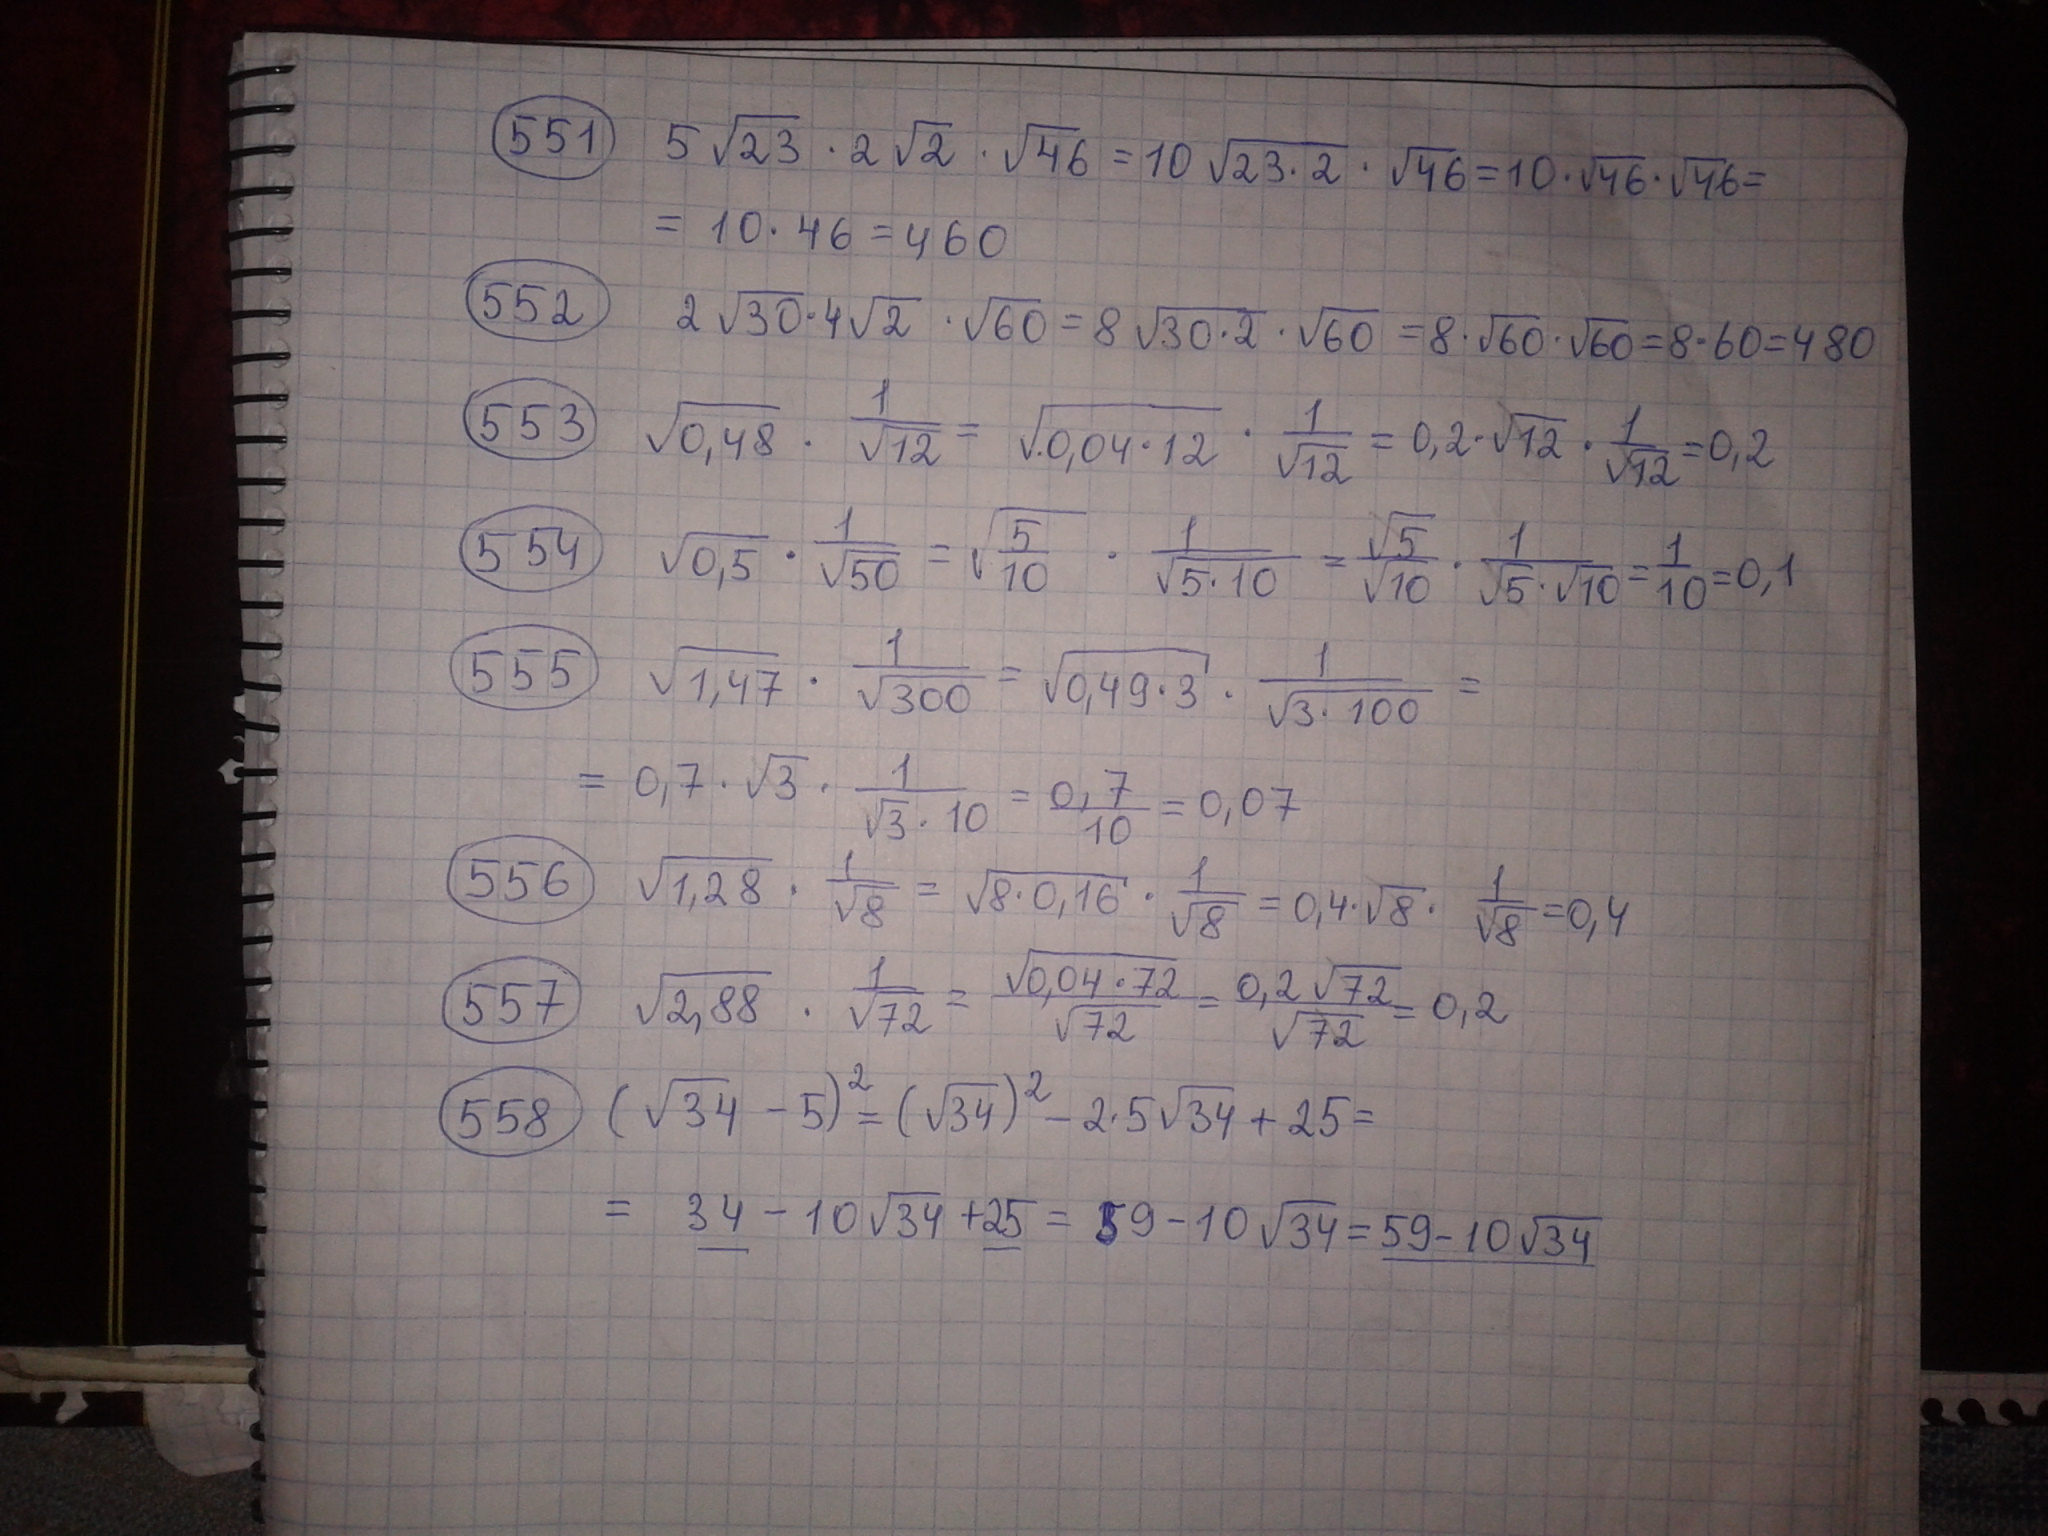 551 5√23 · 2√2 · √46 = 10√23·2 · √46 = 10·√46·√46 =
= 10·46 = 460
552 2√30·4√2 · √60 = 8√30·2 · √60 = 8·√60·√60 = 8·60 = 480
553 √0,48 · 1/√12 = √0,04·12 · 1/√12 = 0,2·√12 · 1/√12 = 0,2
554 √0,5 · 1/√50 = √5/10 · 1/√5·10 = √5/√10 · 1/√5·√10 = 1/10 = 0,1
555 √1,47 · 1/√300 = √0,49·3 · 1/√3·100 =
= 0,7·√3 · 1/√3·10 = 0,7/10 = 0,07
556 √1,28 · 1/√8 = √8·0,16 · 1/√8 = 0,4·√8 · 1/√8 = 0,4
557 √2,88 · 1/√72 = √0,04·72/√72 = 0,2√72/√72 = 0,2
558 (√34 - 5)² = (√34)² - 2·5√34 + 25 =
= 34 - 10√34 + 25 = 59 - 10√34 = 59 - 10√34